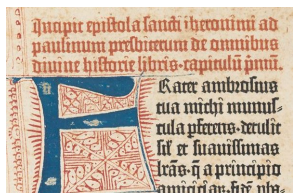 Incipit epistola sancti iheronimi ad
paulinum presbiterum de omnibus
diuine historie libris·capitulū pmū.
Frater ambrosius
tua michi munus-
cula pferens·detulit
sil̄ et suauissimas
lr̄as·q̄ a principio
amiciciar̄·fidē ꝓba-